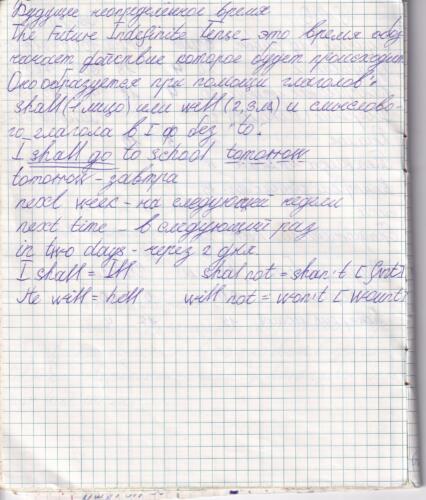 Будущее неопределенное время
The Future Indefinite Tense_ это время обоз
начает действие которое будет происходит
Оно образуется при помощи глаголов:
shall (1 лицо) или will (2,3 л) и смыслово-
го глагола в I ф без "to".
I shall go to school tomorrow
tomorrow - завтра
next week - на следующей недели
next time - в следующий раз
in two days - через 2 дня.
I shall = I'll shal not = shan't [ʃɑnt]
He will = hell will not = won't [wount]